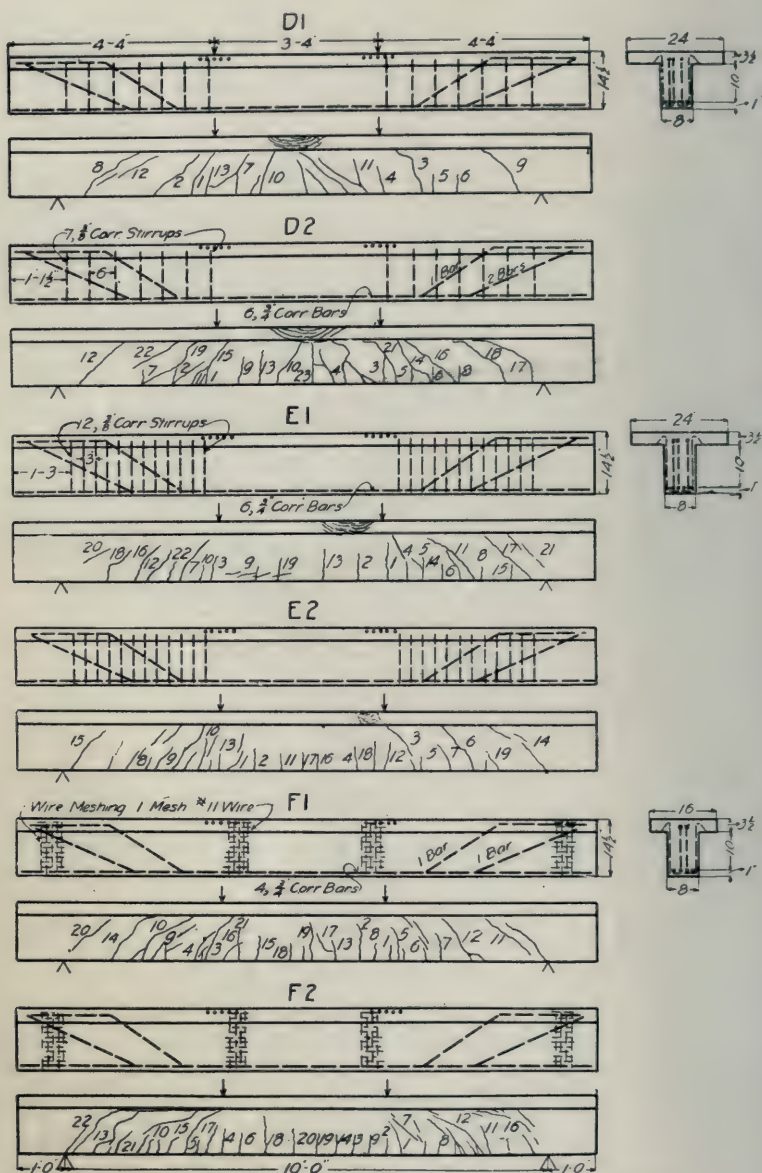 D1
4-4" 3-4" 4-4"
14½
24
3½
10
1"
8
8 12 2 1 13 7 10 11 4 3 5 6 9
D2
7, ⅜ Corr Stirrups
1-1½
6
1 Bar
2 Bars
6, ¾" Corr Bars
12 22 7 19 2 11 1 15 9 13 10 23 4 3 21 5 14 6 16 8 18 17
E1
12, ⅜ Corr Stirrups
1-3
3
14½
24
3½
10
1"
8
6, ¾" Corr Bars
20 18 16 12 22 7 10 3 9 19 13 2 1 4 5 14 6 11 8 15 17 21
E2
15 8 9 10 13 1 2 11 17 16 4 18 12 3 5 7 6 19 14
F1
Wire Meshing 1 Mesh #11 Wire
1 Bar
1 Bar
14½
16
3½
10
1"
8
4, ¾" Corr Bars
20 14 10 9 4 3 16 21 15 18 19 17 13 2 8 1 5 6 7 12 11
F2
22 13 21 10 15 5 17 4 6 18 20 19 14 3 9 2 7 1 8 12 11 16
1-0" 10'-0" 1-0"